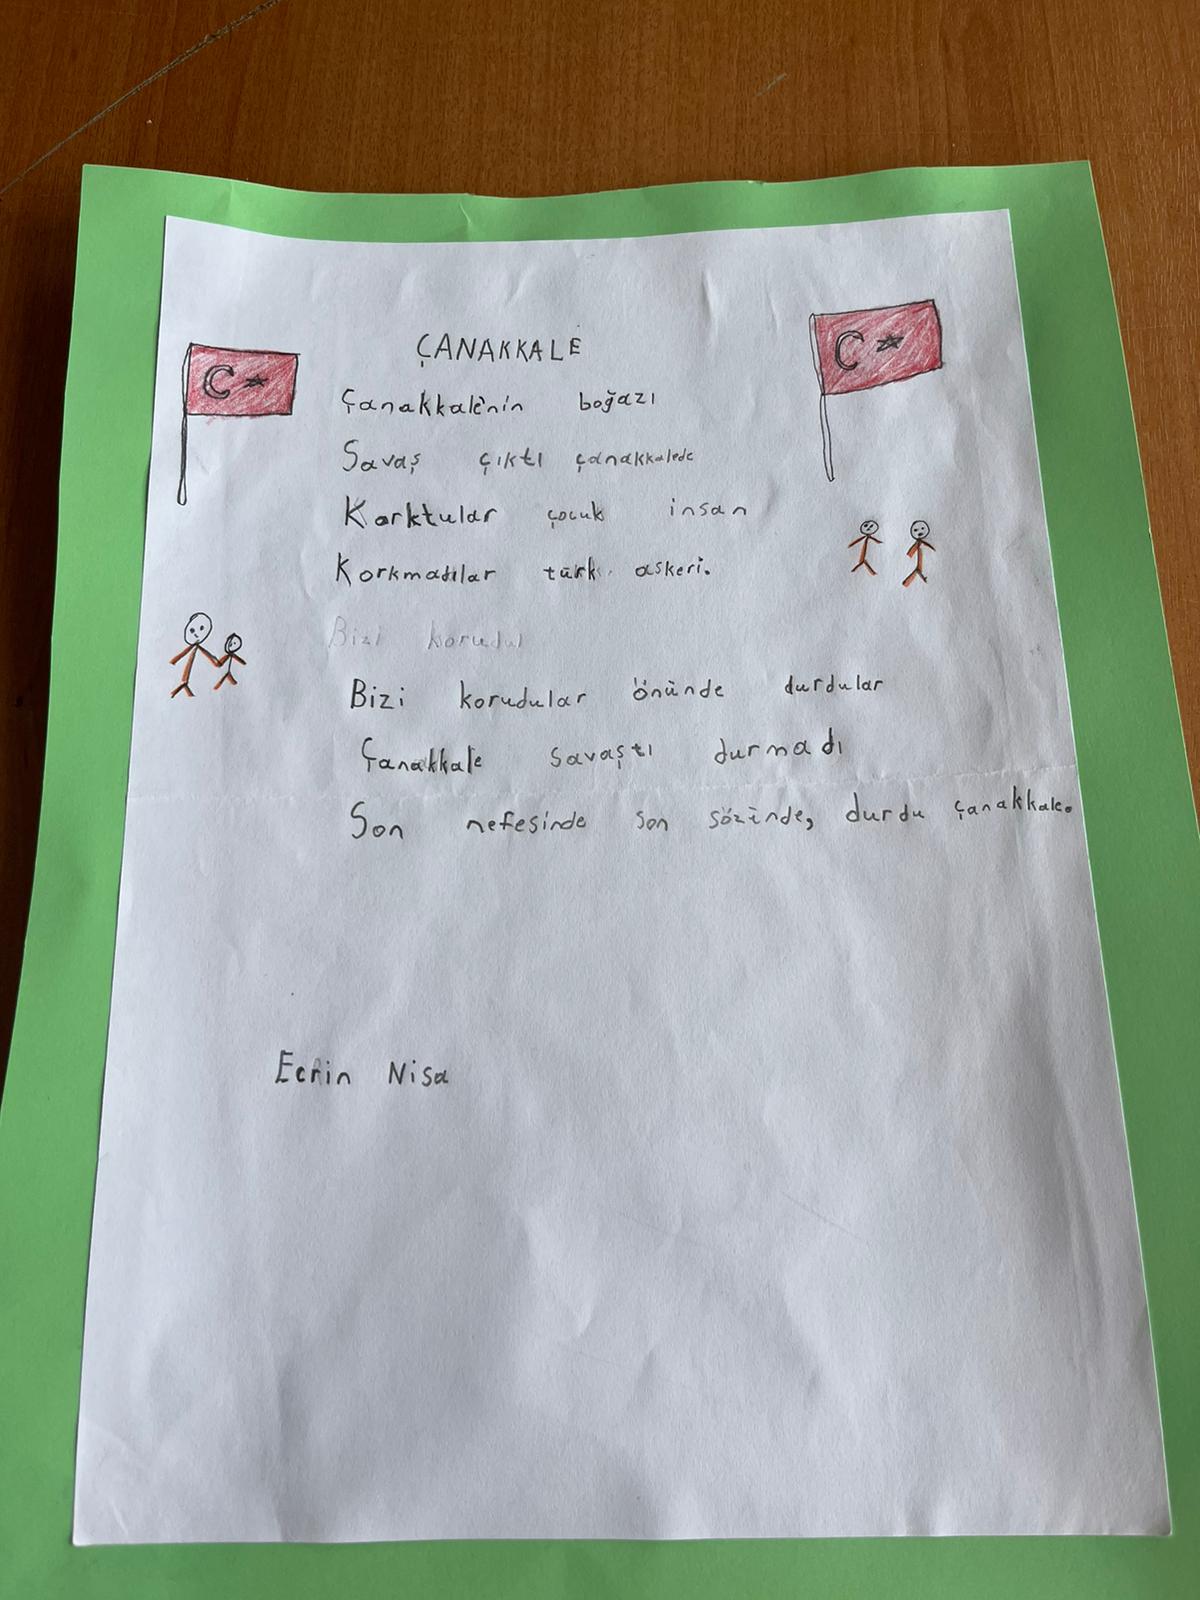 ÇANAKKALE
Çanakkale'nin boğazı
Savaş çıktı çanakkalede
Korktular çocuk insan
Korkmadılar türk askeri.
Bizi korudul
Bizi korudular önünde durdular
Çanakkale savaştı durmadı
Son nefesinde son sözünde, durdu çanakkale.
Ecrin Nisa